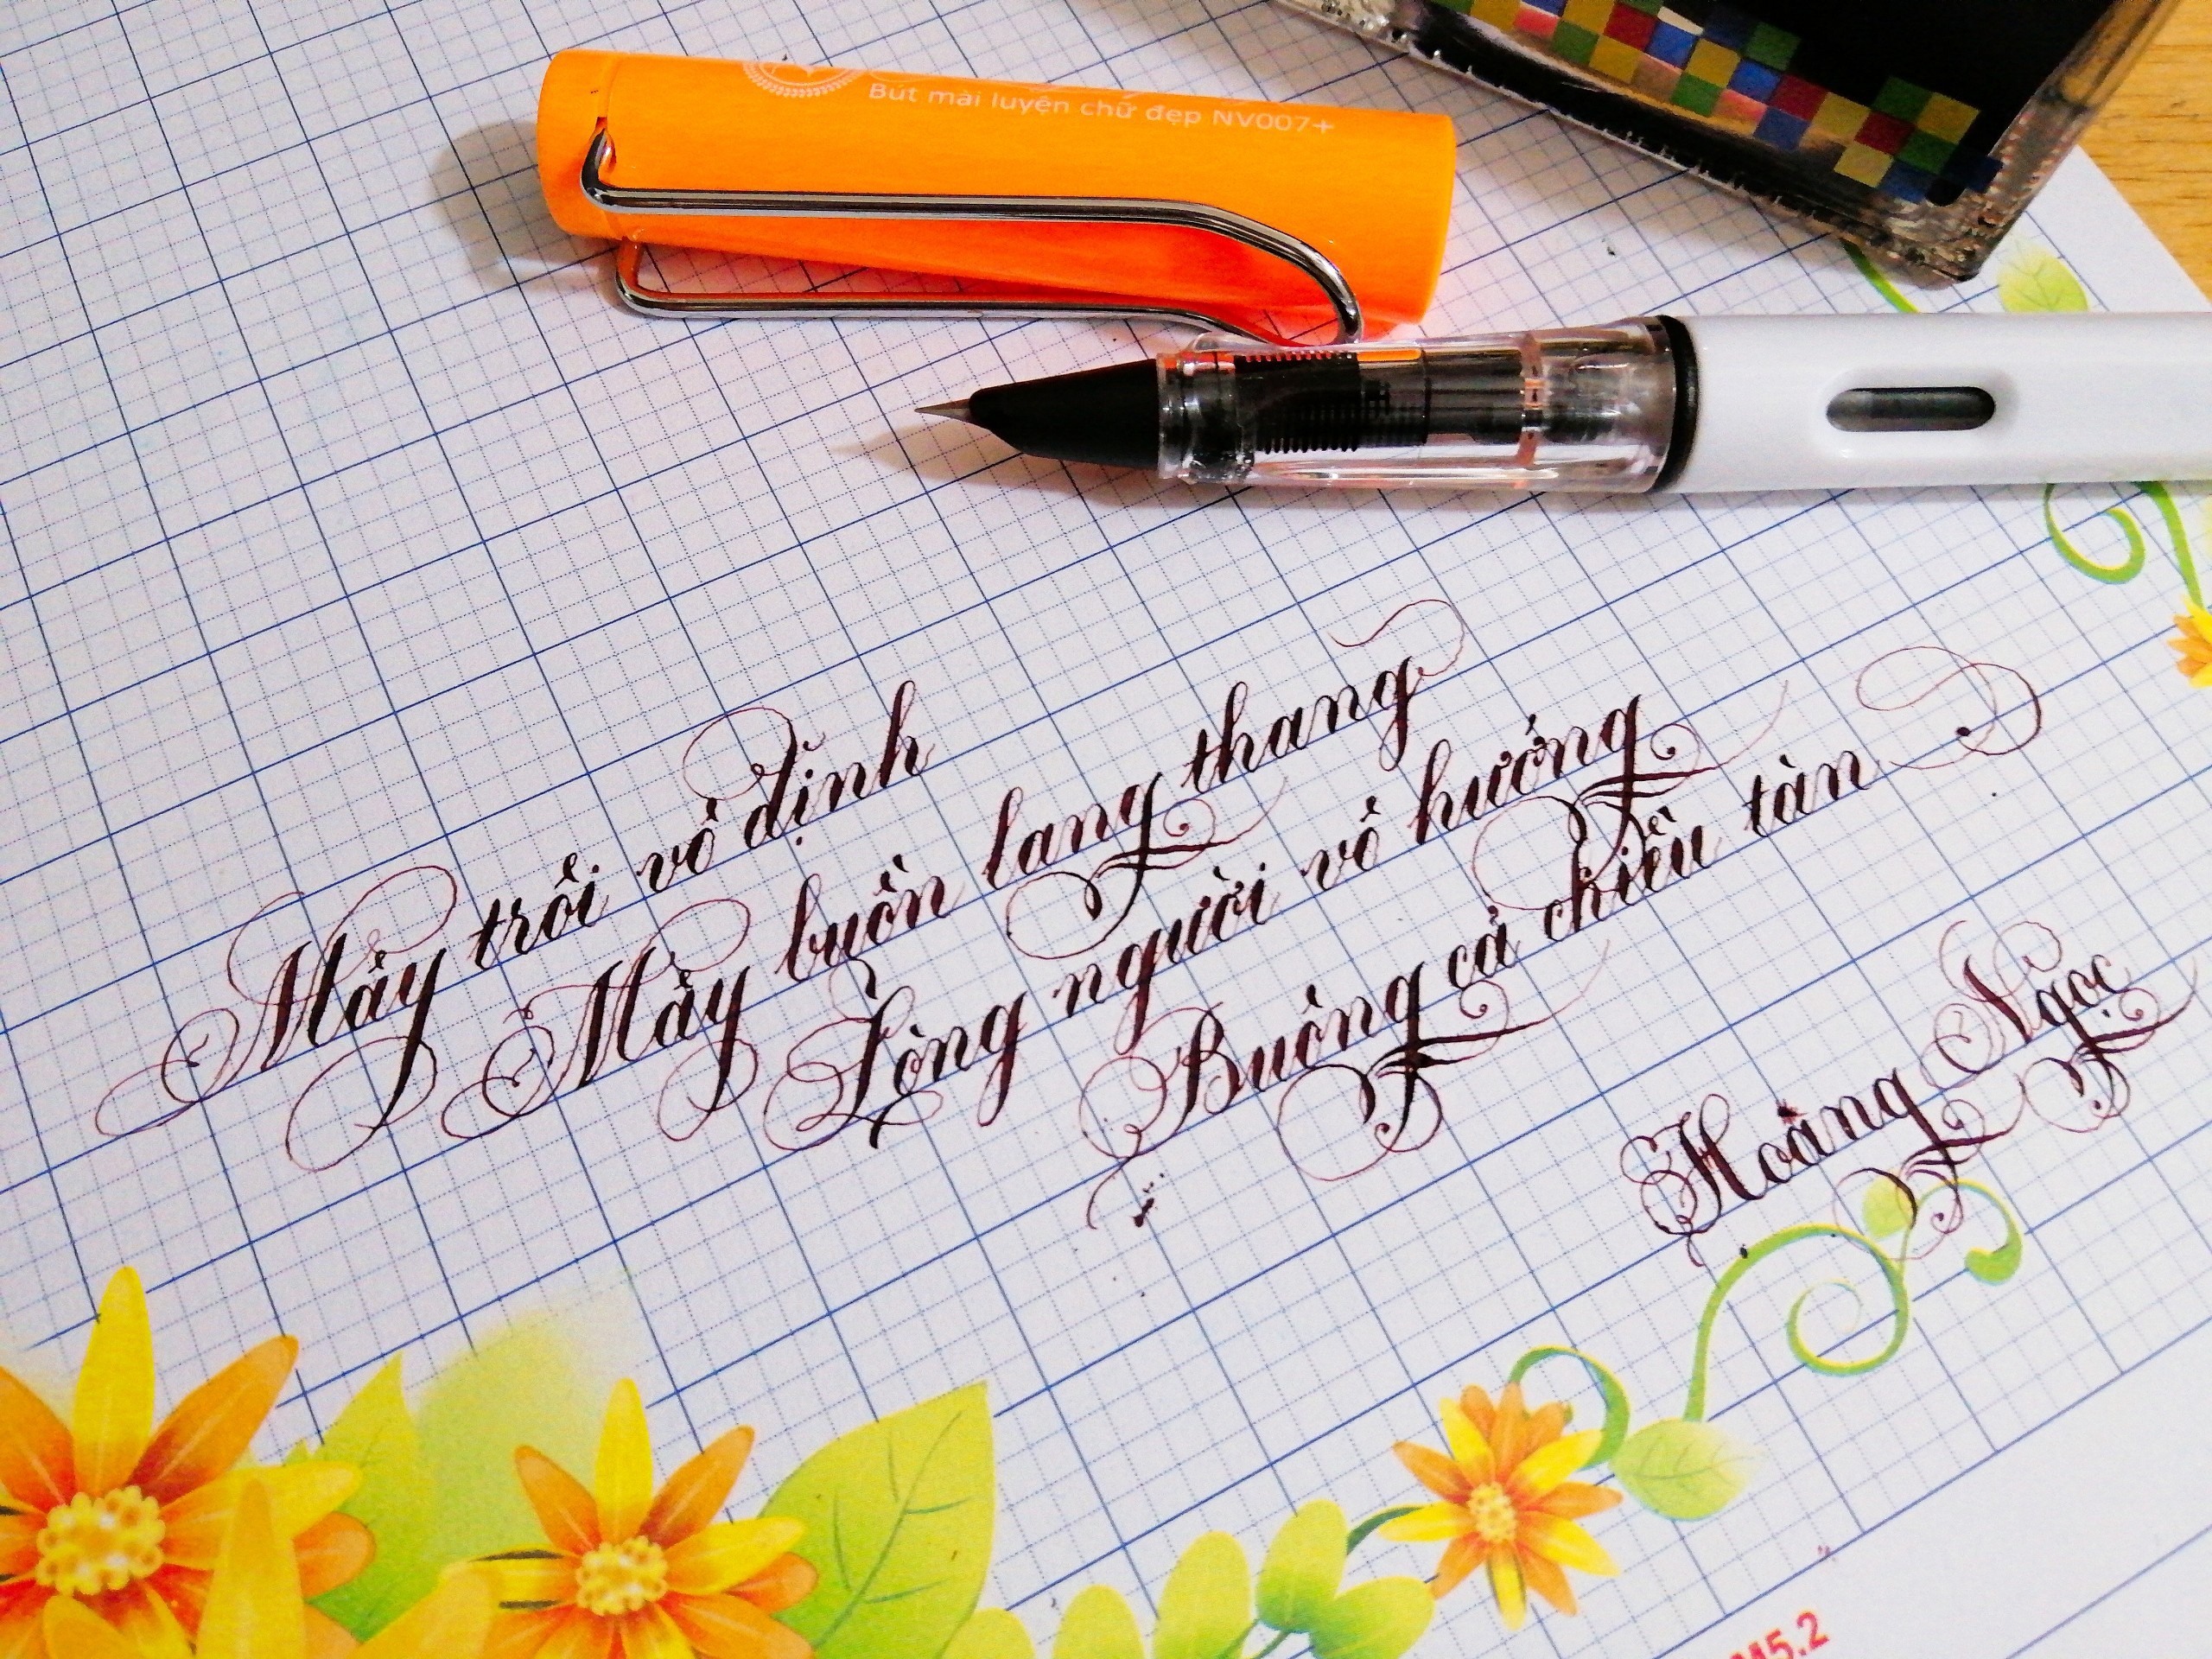 Bút mài luyện chữ đẹp NV007+
Mây trôi vô định
Mây buồn lang thang
Lòng người vô hướng
Buông cả chiều tàn
Hoàng Ngọc
M5.2